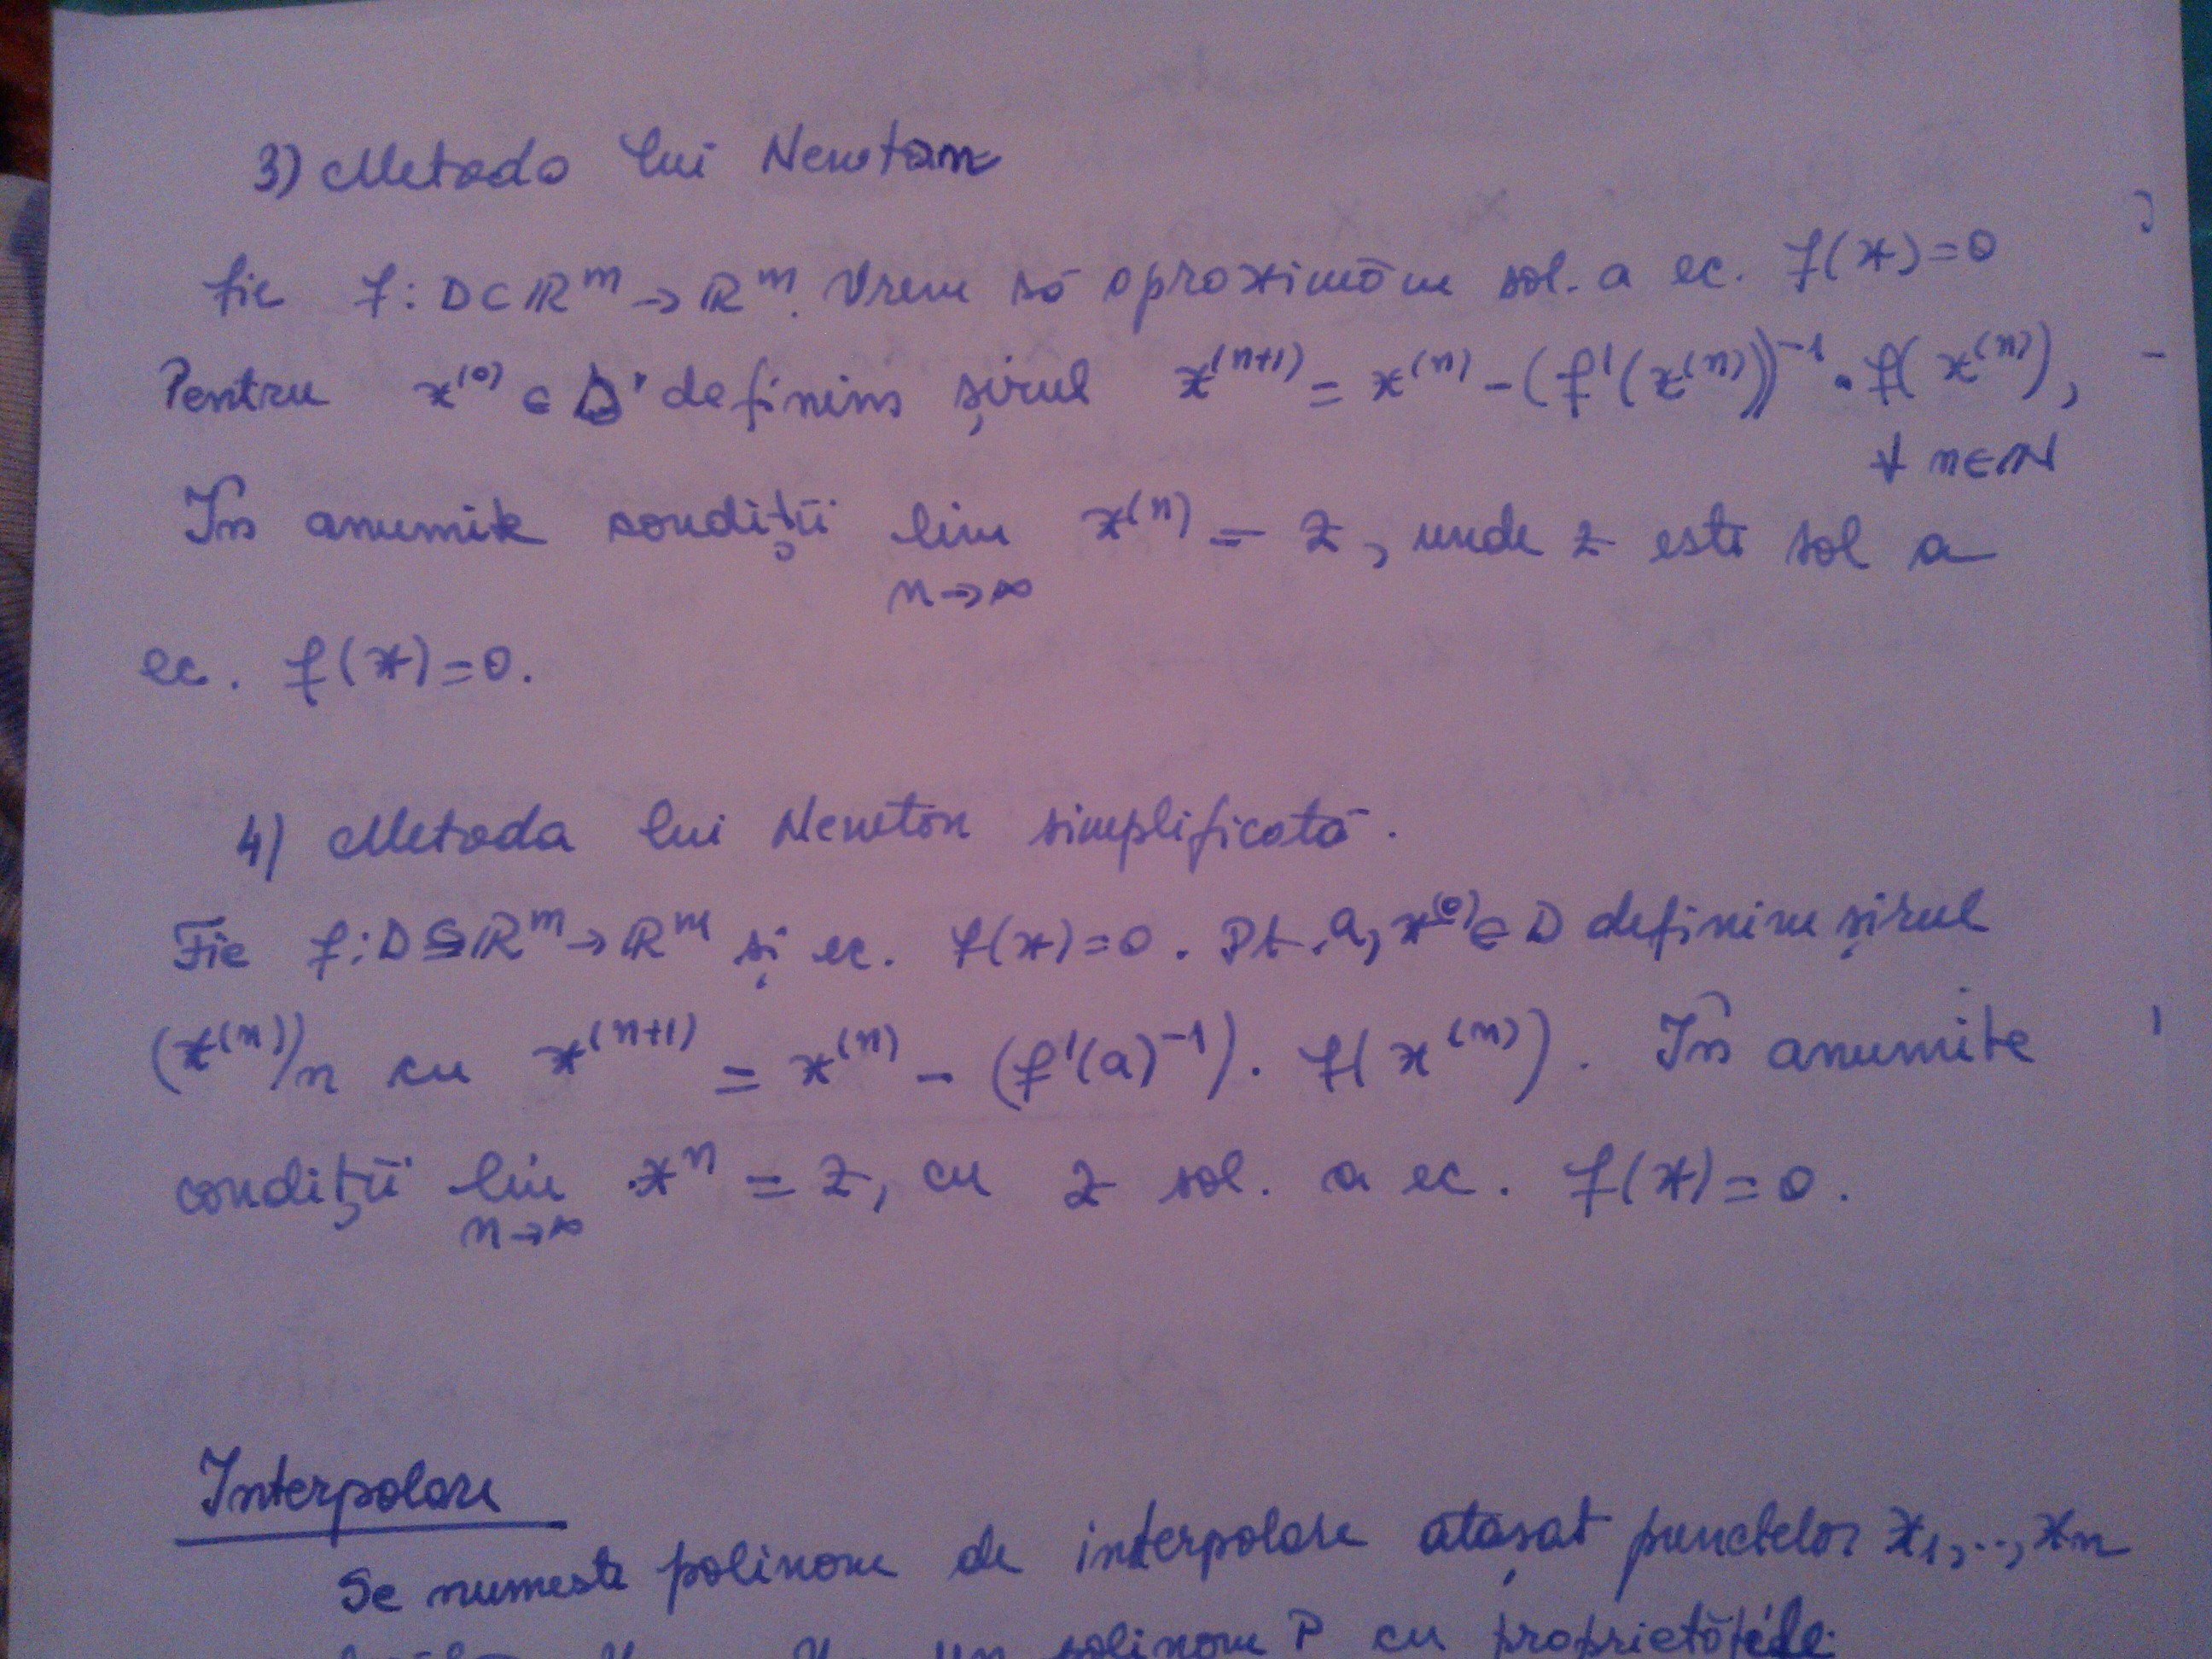 3) Metoda lui Newton
fie f: D⊂ℝ^m → ℝ^m. Vrem să aproximăm sol. a ec. f(x)=0
Pentru x^(0) ∈ D definim șirul x^(n+1) = x^(n) - (f'(x^(n)))^-1 · f(x^(n)),
∀ n∈ℕ
În anumite condiții lim x^(n) = z, unde z este sol a
n→∞
ec. f(x)=0.
4) Metoda lui Newton simplificată.
Fie f:D⊆ℝ^m→ℝ^m și ec. f(x)=0. Pt. a, x^(0)∈D definim șirul
(x^(n))n cu x^(n+1) = x^(n) - (f'(a)^-1) · f(x^(n)). În anumite
condiții lim x^n = z, cu z sol. a ec. f(x)=0.
n→∞
Interpolare
Se numește polinom de interpolare atașat punctelor x1,..,xn
un polinom P cu proprietățile: